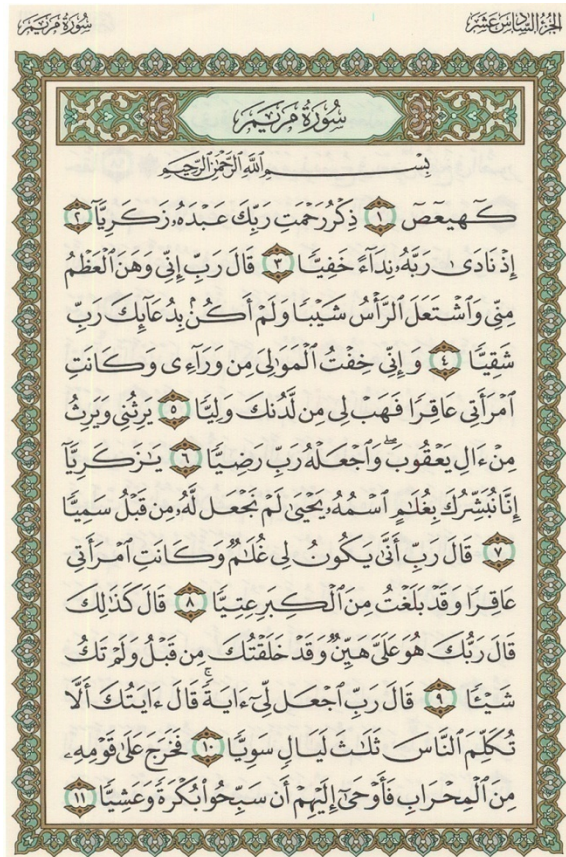 الجزء السادس عشر
سورة مريم
سُورَةُ مَرْيَمَ
بِسْمِ ٱللَّهِ ٱلرَّحْمَٰنِ ٱلرَّحِيمِ
كٓهيعٓصٓ ١ ذِكْرُ رَحْمَتِ رَبِّكَ عَبْدَهُۥ زَكَرِيَّآ ٢
إِذْ نَادَىٰ رَبَّهُۥ نِدَآءً خَفِيًّا ٣ قَالَ رَبِّ إِنِّى وَهَنَ ٱلْعَظْمُ
مِنِّى وَٱشْتَعَلَ ٱلرَّأْسُ شَيْبًا وَلَمْ أَكُنۢ بِدُعَآئِكَ رَبِّ
شَقِيًّا ٤ وَإِنِّى خِفْتُ ٱلْمَوَٰلِىَ مِن وَرَآءِى وَكَانَتِ
ٱمْرَأَتِى عَاقِرًا فَهَبْ لِى مِن لَّدُنكَ وَلِيًّا ٥ يَرِثُنِى وَيَرِثُ
مِنْ ءَالِ يَعْقُوبَ ۖ وَٱجْعَلْهُ رَبِّ رَضِيًّا ٦ يَٰزَكَرِيَّآ
إِنَّا نُبَشِّرُكَ بِغُلَٰمٍ ٱسْمُهُۥ يَحْيَىٰ لَمْ نَجْعَل لَّهُۥ مِن قَبْلُ سَمِيًّا
٧ قَالَ رَبِّ أَنَّىٰ يَكُونُ لِى غُلَٰمٌ وَكَانَتِ ٱمْرَأَتِى
عَاقِرًا وَقَدْ بَلَغْتُ مِنَ ٱلْكِبَرِ عِتِيًّا ٨ قَالَ كَذَٰلِكَ
قَالَ رَبُّكَ هُوَ عَلَىَّ هَيِّنٌ وَقَدْ خَلَقْتُكَ مِن قَبْلُ وَلَمْ تَكُ
شَيْـًٔا ٩ قَالَ رَبِّ ٱجْعَل لِّىٓ ءَايَةً ۚ قَالَ ءَايَتُكَ أَلَّا
تُكَلِّمَ ٱلنَّاسَ ثَلَٰثَ لَيَالٍ سَوِيًّا ١٠ فَخَرَجَ عَلَىٰ قَوْمِهِۦ
مِنَ ٱلْمِحْرَابِ فَأَوْحَىٰٓ إِلَيْهِمْ أَن سَبِّحُوا۟ بُكْرَةً وَعَشِيًّا ١١